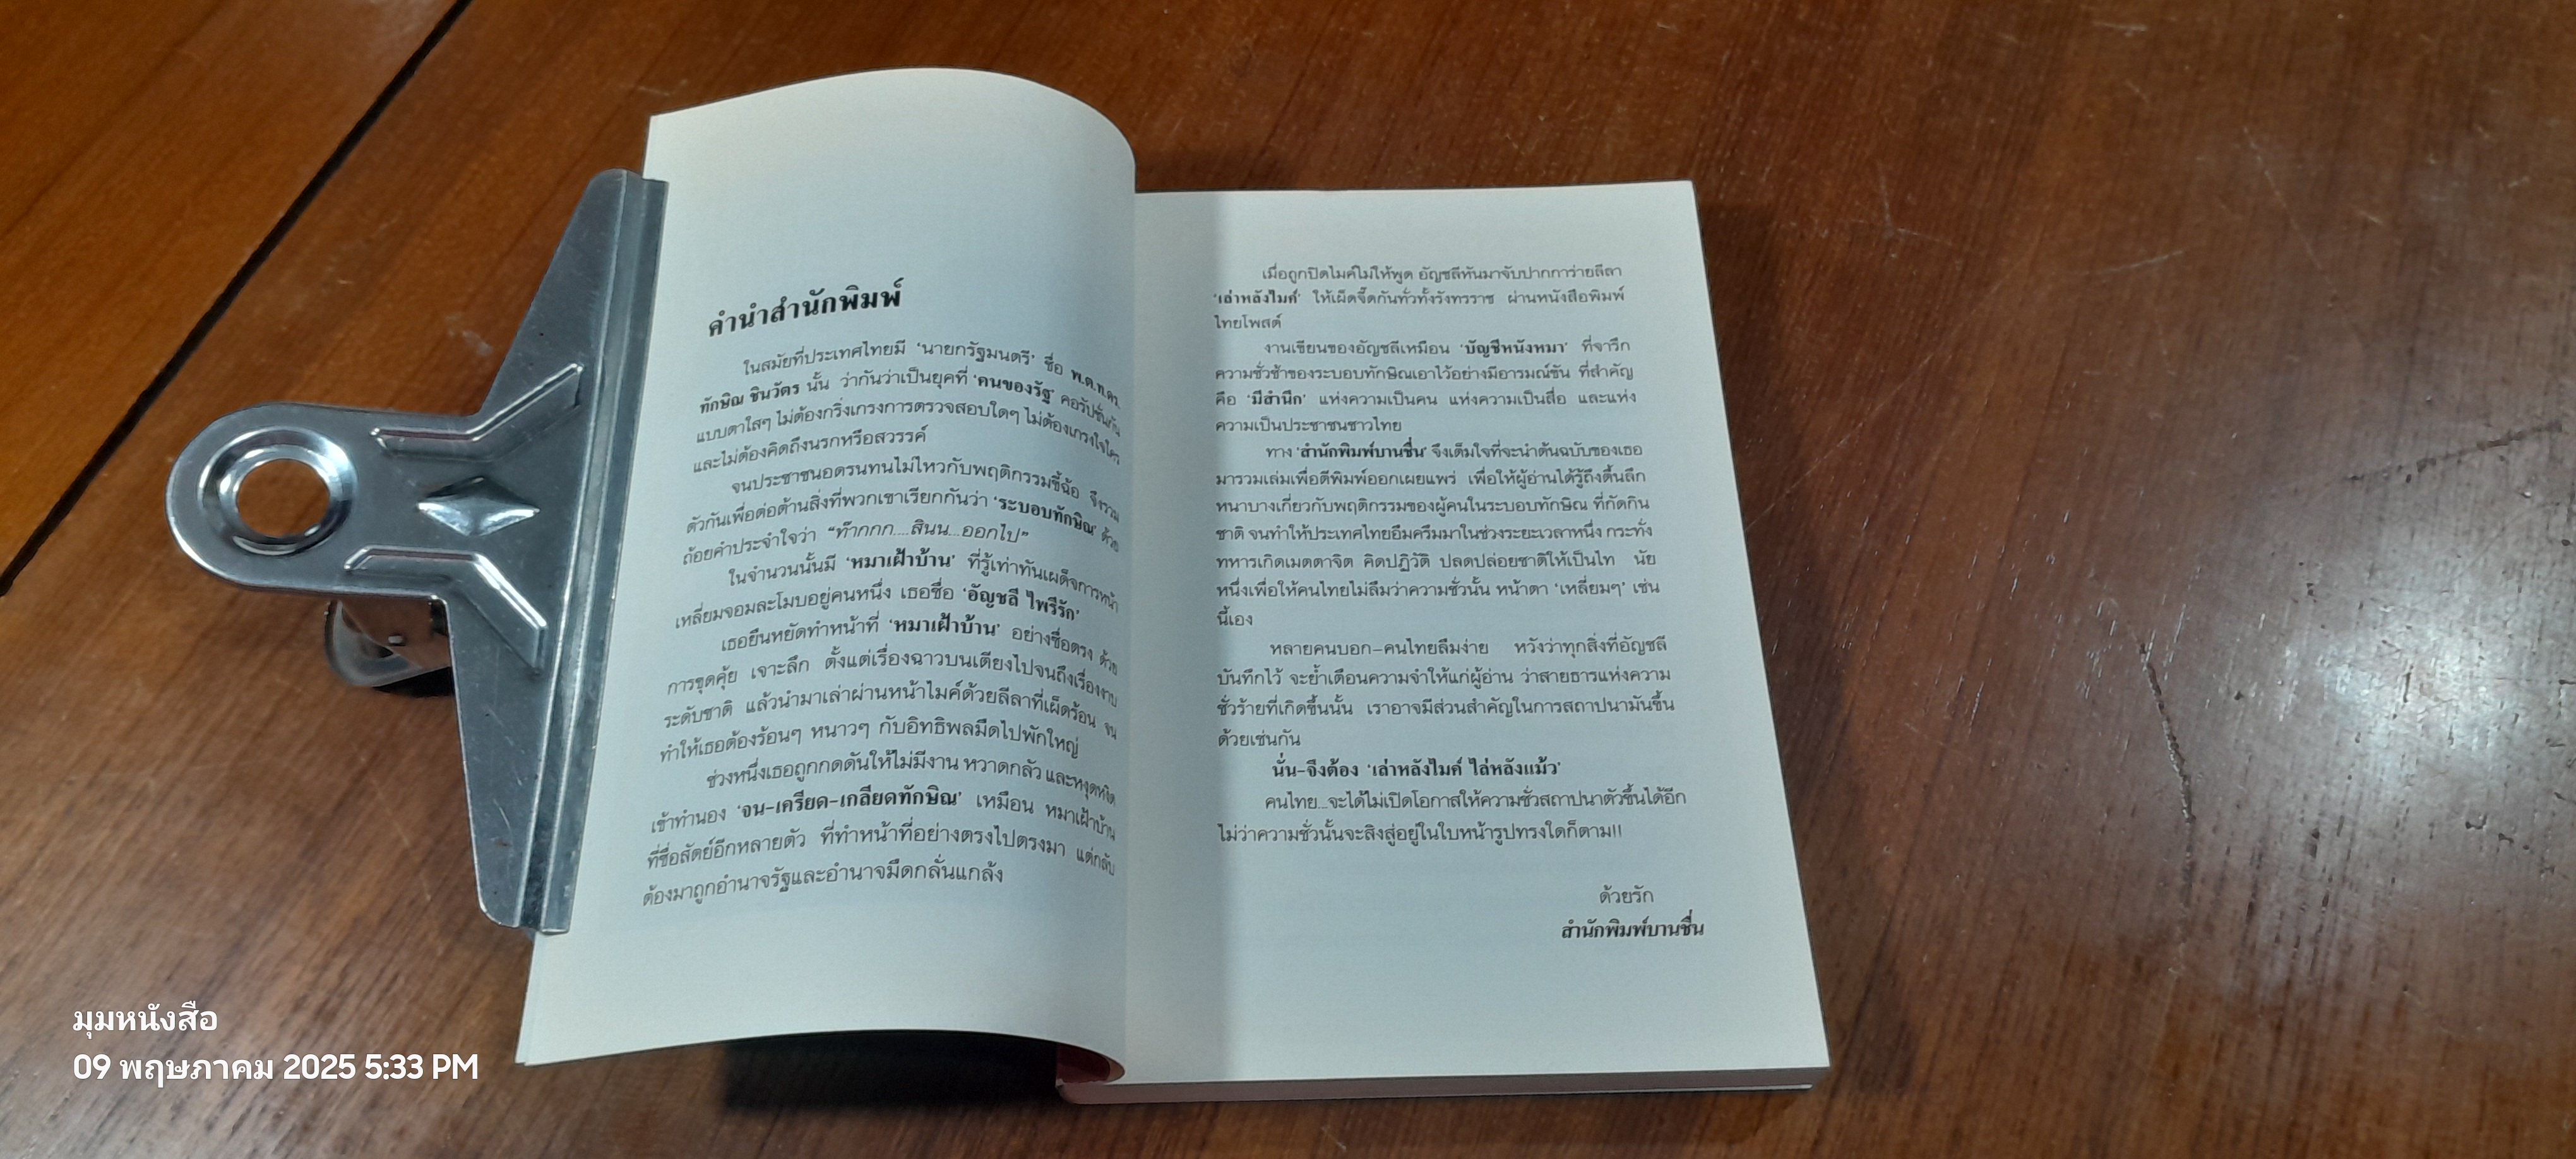 คำนำสำนักพิมพ์
ในสมัยที่ประเทศไทยมี 'นายกรัฐมนตรี' ชื่อ พ.ต.ท.ดร.
ทักษิณ ชินวัตร นั้น ว่ากันว่าเป็นยุคที่ 'คนของรัฐ' คอรัปชั่นกัน
แบบตาใสๆ ไม่ต้องกริ่งเกรงการตรวจสอบใดๆ ไม่ต้องเกรงใจใคร
และไม่ต้องคิดถึงนรกหรือสวรรค์
จนประชาชนอดรนทนไม่ไหวกับพฤติกรรมขี้ฉ้อ จึงรวม
ตัวกันเพื่อต่อต้านสิ่งที่พวกเขาเรียกกันว่า 'ระบอบทักษิณ' ด้วย
ถ้อยคำประจำใจว่า "ท๊ากกก....สินน...ออกไป"
ในจำนวนนั้นมี 'หมาเฝ้าบ้าน' ที่รู้เท่าทันเผด็จการหน้า
เหลี่ยมจอมละโมบอยู่คนหนึ่ง เธอชื่อ 'อัญชลี ไพรีรัก'
เธอยืนหยัดทำหน้าที่ 'หมาเฝ้าบ้าน' อย่างซื่อตรง ด้วย
การขุดคุ้ย เจาะลึก ตั้งแต่เรื่องฉาวบนเตียงไปจนถึงเรื่องงาบ
ระดับชาติ แล้วนำมาเล่าผ่านหน้าไมค์ด้วยลีลาที่เผ็ดร้อน จน
ทำให้เธอต้องร้อนๆ หนาวๆ กับอิทธิพลมืดไปพักใหญ่
ช่วงหนึ่งเธอถูกกดดันให้ไม่มีงาน หวาดกลัว และหงุดหงิด
เข้าทำนอง 'จน-เครียด-เกลียดทักษิณ' เหมือน หมาเฝ้าบ้าน
ที่ซื่อสัตย์อีกหลายตัว ที่ทำหน้าที่อย่างตรงไปตรงมา แต่กลับ
ต้องมาถูกอำนาจรัฐและอำนาจมืดกลั่นแกล้ง
เมื่อถูกปิดไมค์ไม่ให้พูด อัญชลีหันมาจับปากการ่ายลีลา
'เล่าหลังไมค์' ให้เผ็ดจี๊ดกันทั่วทั้งรังทรราช ผ่านหนังสือพิมพ์
ไทยโพสต์
งานเขียนของอัญชลีเหมือน 'บัญชีหนังหมา' ที่จารึก
ความชั่วช้าของระบอบทักษิณเอาไว้อย่างมีอารมณ์ขัน ที่สำคัญ
คือ 'มีสำนึก' แห่งความเป็นคน แห่งความเป็นสื่อ และแห่ง
ความเป็นประชาชนชาวไทย
ทาง 'สำนักพิมพ์บานชื่น' จึงเต็มใจที่จะนำต้นฉบับของเธอ
มารวมเล่มเพื่อตีพิมพ์ออกเผยแพร่ เพื่อให้ผู้อ่านได้รู้ถึงตื้นลึก
หนาบางเกี่ยวกับพฤติกรรมของผู้คนในระบอบทักษิณ ที่กัดกิน
ชาติ จนทำให้ประเทศไทยอึมครึมมาในช่วงระยะเวลาหนึ่ง กระทั่ง
ทหารเกิดเมตตาจิต คิดปฏิวัติ ปลดปล่อยชาติให้เป็นไท นัย
หนึ่งเพื่อให้คนไทยไม่ลืมว่าความชั่วนั้น หน้าตา 'เหลี่ยมๆ' เช่น
นี้เอง
หลายคนบอก-คนไทยลืมง่าย หวังว่าทุกสิ่งที่อัญชลี
บันทึกไว้ จะย้ำเตือนความจำให้แก่ผู้อ่าน ว่าสายธารแห่งความ
ชั่วร้ายที่เกิดขึ้นนั้น เราอาจมีส่วนสำคัญในการสถาปนามันขึ้น
ด้วยเช่นกัน
นั่น-จึงต้อง 'เล่าหลังไมค์ ไล่หลังแม้ว'
คนไทย...จะได้ไม่เปิดโอกาสให้ความชั่วสถาปนาตัวขึ้นได้อีก
ไม่ว่าความชั่วนั้นจะสิงสู่อยู่ในใบหน้ารูปทรงใดก็ตาม!!
ด้วยรัก
สำนักพิมพ์บานชื่น
มุมหนังสือ
09 พฤษภาคม 2025 5:33 PM